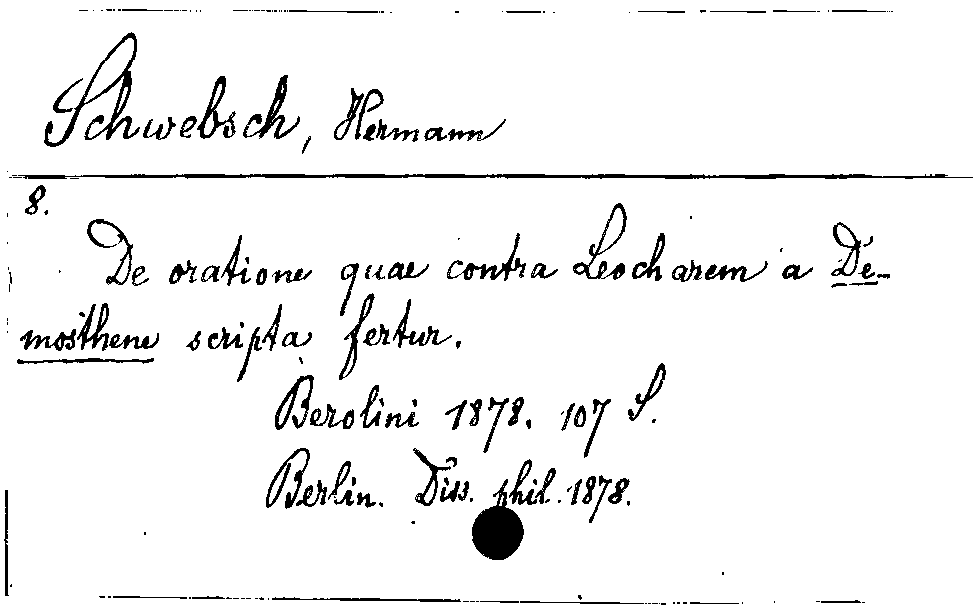 Schwebsch, Hermann
8.
De oratione quae contra Leocharem a De-
mosthene scripta fertur.
Berolini 1878. 107 S.
Berlin. Diss. phil. 1878.